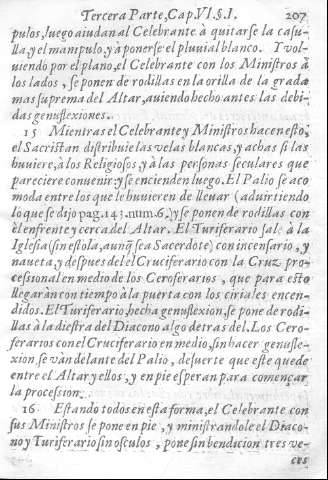 Tercera Parte, Cap. VI. §. I. 207
pulos, luego aiudan al Celebrante à quitarse la casu-
lla, y el manipulo, y à ponerse el pluuial blanco. Y vol-
uiendo por el plano, el Celebrante con los Ministros à
los lados, se ponen de rodillas en la orilla de la grada
mas suprema del Altar, auiendo hecho antes las debi-
das genuflexiones.
15 Mientras el Celebrante y Ministros hacen esto,
el Sacristan distribuie las velas blancas, y achas si las
huuiere, à los Religiosos, y à las personas seculares que
pareciere conuenir: y se encienden luego. El Palio se aco
moda entre los que le huuieren de lleuar (aduirtiendo
lo que se dijo pag. 143. num. 6.) y se ponen de rodillas con
èl enfrente y cerca del Altar. El Turiferario sale à la
Iglesia (sin estola, aunq̃ sea Sacerdote) con incensario, y
naueta, y despues del el Cruciferario con la Cruz pro-
cessional en medio de los Ceroferarios, que para esto
llegaràn con tiempo à la puerta con los ciriales encen-
didos. El Turiferario, hecha genuflexion, se pone de rodi-
llas à la diestra del Diacono algo detras del. Los Cero-
ferarios con el Cruciferario en medio, sin hacer genufle-
xion, se vàn delante del Palio, desuerte que este quede
entre el Altar y ellos, y en pie esperan para començar
la procession.
16 Estando todos en esta forma, el Celebrante con
sus Ministros se pone en pie, y ministrandole el Diaco-
no y Turiferario sin osculos, pone sin bendicion tres ve-
ces